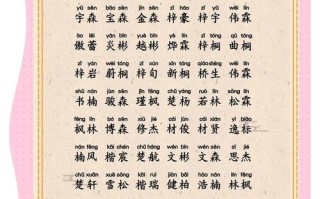 yǔ sēn bǎo sēn jīn sēn zǐ háo zǐ yǔ wěi lín
宇森 宝森 金森 梓豪 梓宇 伟霖
ào lěi yán bīn yuè bīn yè lín zǐ tóng qū tóng
傲蕾 炎彬 越彬 烨霖 梓桐 曲桐
zǐ yán wèi tóng zǐ xún xīn tóng qiáo shēng wěi lín
梓岩 蔚桐 梓旬 新桐 桥生 伟霖
shū nán jùn sēn jǐn fēng chǔ yáng ruò lín sōng lín
书楠 骏森 瑾枫 楚杨 若林 松霖
fēng lín bó sēn xiū jié cái jùn cái xián yì biāo
枫林 博森 修杰 材俊 材贤 逸标
nán fēng kǎi chén chǔ háng wén bīn wén sēn sī jié
楠风 楷宸 楚航 文彬 文森 思杰
chǔ xuān xuě sōng kǎi ruì jiàn bǎi hào nán lín fēng
楚轩 雪松 楷瑞 健柏 浩楠 林枫